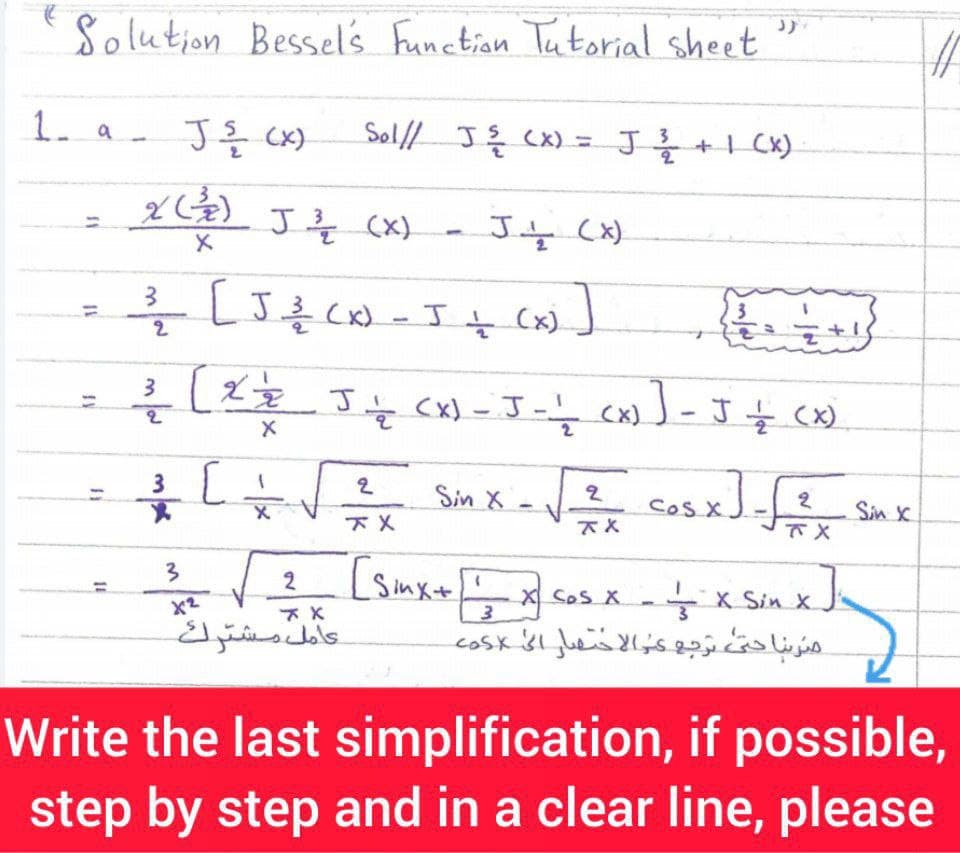 " Solution Bessel's Function Tutorial sheet "
1- a - J 5/2 (x) Sol// J 5/2 (x) = J 3/2 + 1 (x)
= 2(3/2)/x J 3/2 (x) - J 1/2 (x)
= 3/2 [ J 3/2 (x) - J 1/2 (x) ] , { 3/2 = 1/2 + 1 }
= 3/2 [ 2 1/2 / x J 1/2 (x) - J -1/2 (x) ] - J 1/2 (x)
= 3/x [ 1/x √(2/πx) Sin x - √(2/πx) cos x ] - √(2/πx) Sin x
= 3/x² √(2/πx) [ Sinx + 1/3 x cos x - 1/3 x Sin x ]
عامل مشترك ضربنا حتى ترجع عند الاختصار الى cosx
Write the last simplification, if possible,
step by step and in a clear line, please